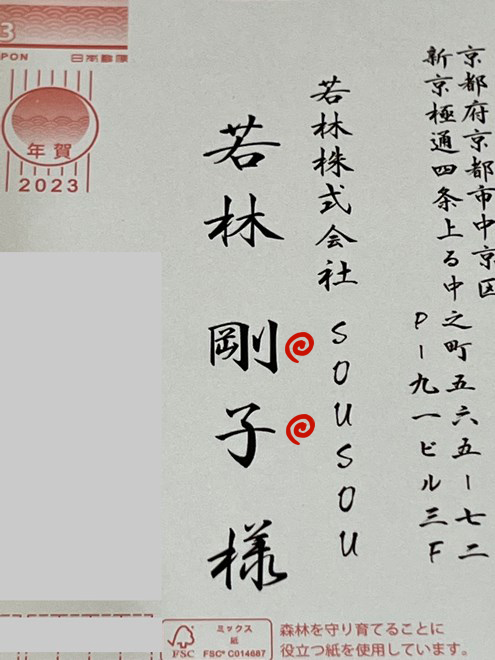 京都府京都市中京区
新京極通四条上る中之町五六五ー七二
Pー九一ビル三F
若林株式会社 SOUSOU
若林 剛子 様
3
PON 日本郵便
年賀
2023
FSC
ミックス
紙
FSC® C014687
森林を守り育てることに
役立つ紙を使用しています。